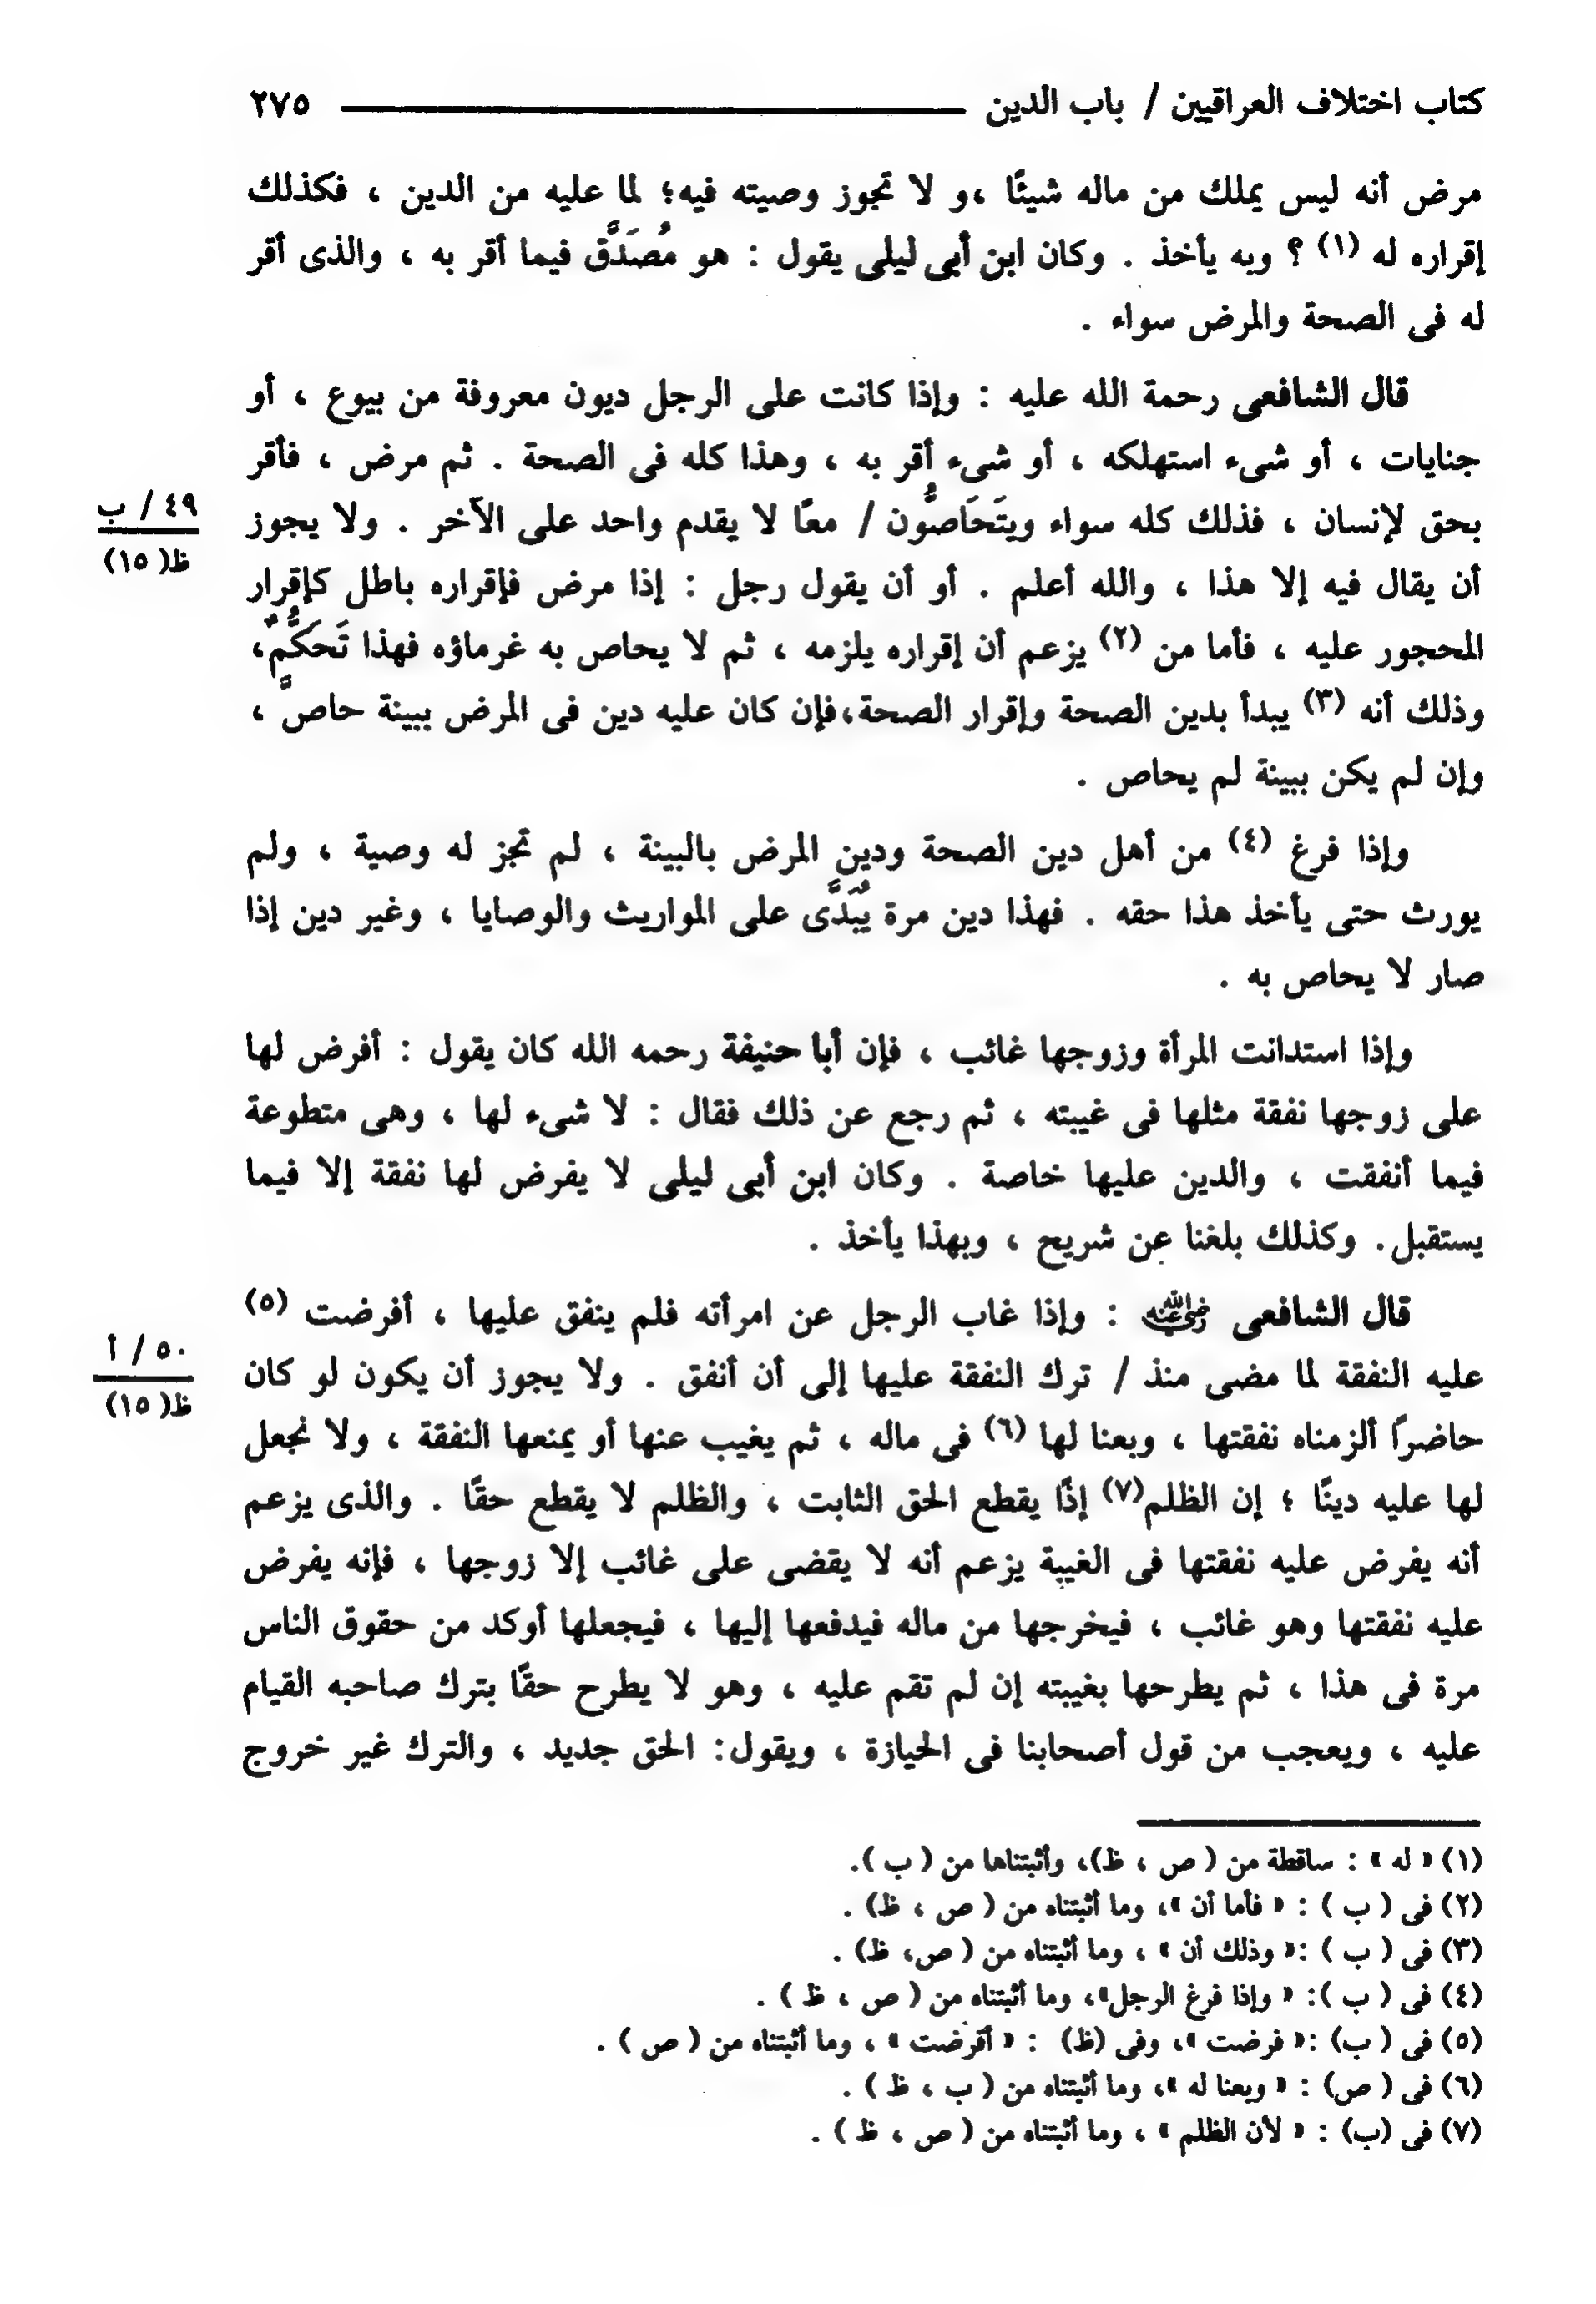 كتاب اختلاف العراقيين / باب الدين ٢٧٥
مرض أنه ليس يملك من ماله شيئًا ،و لا تجوز وصيته فيه؛ لما عليه من الدين ، فكذلك
إقراره له (١) ؟ وبه يأخذ . وكان ابن أبى ليلى يقول : هو مُصَدَّق فيما أقر به ، والذى أقر
له فى الصحة والمرض سواء .
قال الشافعى رحمة الله عليه : وإذا كانت على الرجل ديون معروفة من بيوع ، أو
جنايات ، أو شىء استهلكه ، أو شىء أقر به ، وهذا كله فى الصحة . ثم مرض ، فأقر
بحق لإنسان ، فذلك كله سواء ويتَحَاصُّون / معًا لا يقدم واحد على الآخر . ولا يجوز
٤٩ / ب
ظ( ١٥)
أن يقال فيه إلا هذا ، والله أعلم . أو أن يقول رجل : إذا مرض فإقراره باطل كإقرار
المحجور عليه ، فأما من (٢) يزعم أن إقراره يلزمه ، ثم لا يحاص به غرماؤه فهذا تَحَكُّمٌ،
وذلك أنه (٣) يبدأ بدين الصحة وإقرار الصحة،فإن كان عليه دين فى المرض ببينة حاصٍّ ،
وإن لم يكن ببينة لم يحاص .
وإذا فرغ (٤) من أهل دين الصحة ودين المرض بالبينة ، لم تجز له وصية ، ولم
يورث حتى يأخذ هذا حقه . فهذا دين مرة يُبَدَّى على المواريث والوصايا ، وغير دين إذا
صار لا يحاص به .
وإذا استدانت المرأة وزوجها غائب ، فإن أبا حنيفة رحمه الله كان يقول : أفرض لها
على زوجها نفقة مثلها فى غيبته ، ثم رجع عن ذلك فقال : لا شىء لها ، وهى متطوعة
فيما أنفقت ، والدين عليها خاصة . وكان ابن أبى ليلى لا يفرض لها نفقة إلا فيما
يستقبل. وكذلك بلغنا عن شريح ، وبهذا يأخذ .
قال الشافعى رضي الله عنه : وإذا غاب الرجل عن امرأته فلم ينفق عليها ، أفرضت (٥)
عليه النفقة لما مضى منذ / ترك النفقة عليها إلى أن أنفق . ولا يجوز أن يكون لو كان
٥٠ / أ
ظ( ١٥)
حاضرًا ألزمناه نفقتها ، وبعنا لها (٦) فى ماله ، ثم يغيب عنها أو يمنعها النفقة ، ولا نجعل
لها عليه دينًا ؛ إن الظلم(٧) إذًا يقطع الحق الثابت ، والظلم لا يقطع حقًا . والذى يزعم
أنه يفرض عليه نفقتها فى الغيبة يزعم أنه لا يقضى على غائب إلا زوجها ، فإنه يفرض
عليه نفقتها وهو غائب ، فيخرجها من ماله فيدفعها إليها ، فيجعلها أوكد من حقوق الناس
مرة فى هذا ، ثم يطرحها بغيبته إن لم تقم عليه ، وهو لا يطرح حقًا بترك صاحبه القيام
عليه ، ويعجب من قول أصحابنا فى الحيازة ، ويقول: الحق جديد ، والترك غير خروج
(١) « له » : ساقطة من ( ص ، ظ)، وأثبتناها من ( ب ).
(٢) فى ( ب ) : « فأما أن »، وما أثبتناه من ( ص ، ظ) .
(٣) فى ( ب ) :« وذلك أن » ، وما أثبتناه من ( ص، ظ) .
(٤) فى ( ب ): « وإذا فرغ الرجل»، وما أثبتناه من ( ص ، ظ ) .
(٥) فى ( ب) :« فرضت »، وفى (ظ) : « أقرضت » ، وما أثبتناه من ( ص ) .
(٦) فى ( ص) : « وبعنا له »، وما أثبتناه من ( ب ، ظ ) .
(٧) فى (ب) : « لأن الظلم » ، وما أثبتناه من ( ص ، ظ ) .